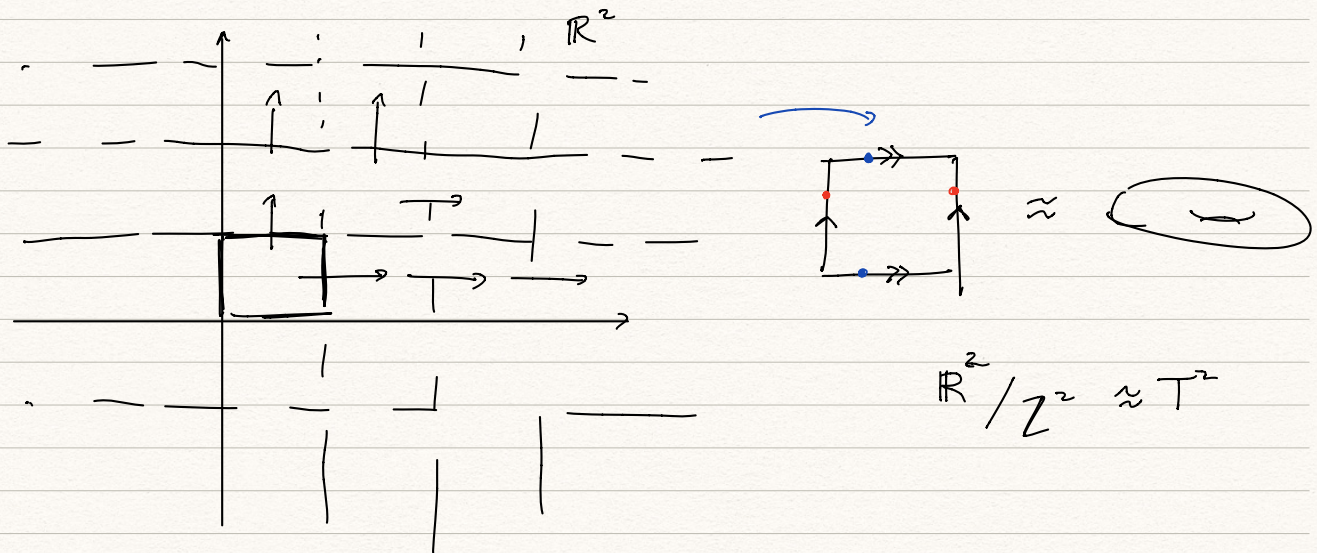 ℝ²
≈
ℝ²/ℤ² ≈ T²